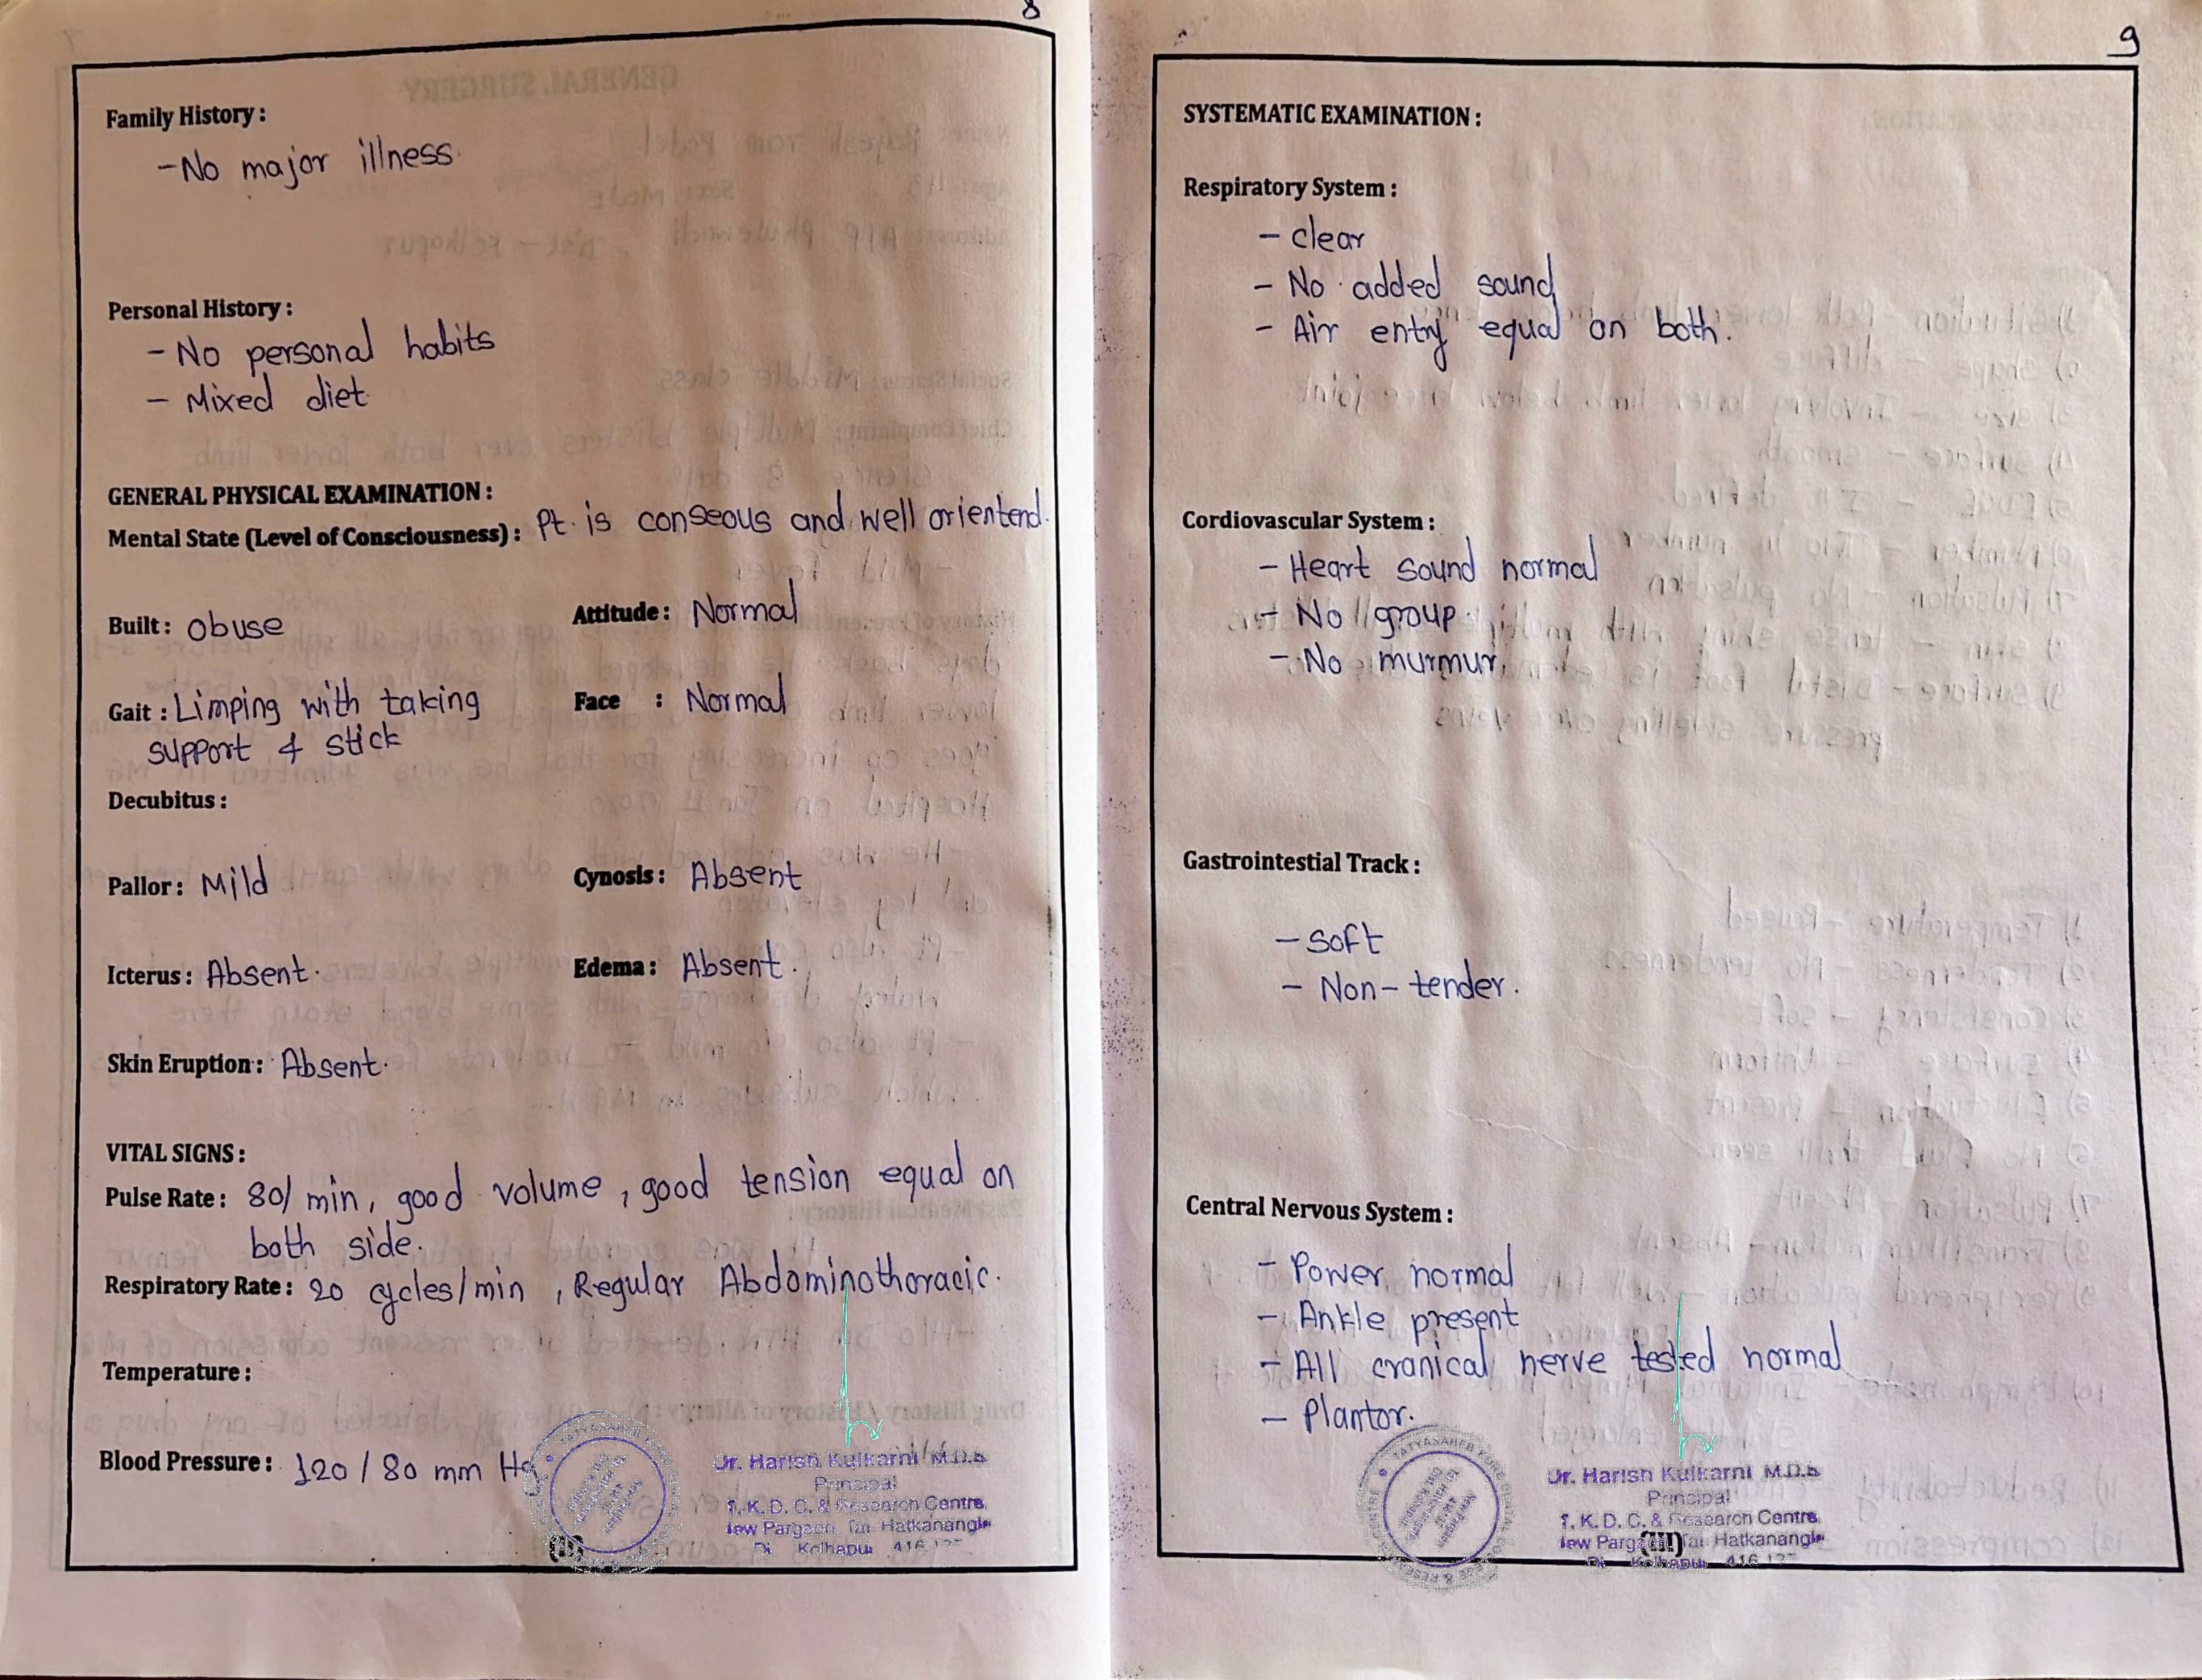 8
Family History :
- No major illness.
Personal History :
- No personal habits
- Mixed diet.
GENERAL PHYSICAL EXAMINATION :
Mental State (Level of Consciousness) : Pt. is conseous and well orientend.
Built : obuse
Attitude : Normal
Gait : Limping with taking
support & stick
Face : Normal
Decubitus :
Pallor : Mild
Cynosis : Absent
Icterus : Absent.
Edema : Absent.
Skin Eruption : Absent.
VITAL SIGNS :
Pulse Rate : 80/ min, good volume, good tension equal on
both side.
Respiratory Rate : 20 cycles/min, Regular Abdominothoracic.
Temperature :
Blood Pressure : 120 / 80 mm Hg
Dr. Harish Kulkarni M.D.S
Principal
T. K. D. C. & Research Centre,
New Pargaon, Tal. Hatkanangle
Di Kolhapur 416
(II)
9
SYSTEMATIC EXAMINATION :
Respiratory System :
- clear
- No added sound
- Air entry equal on both.
Cordiovascular System :
- Heart sound normal
- No group.
- No murmur.
Gastrointestial Track :
- Soft
- Non-tender.
Central Nervous System :
- Power normal
- Ankle present
- All cranical nerve tested normal
- Plantor.
Dr. Harish Kulkarni M.D.S
Principal
T. K. D. C. & Research Centre,
New Pargaon, Tal. Hatkanangle
(III)
Di Kolhapur 416